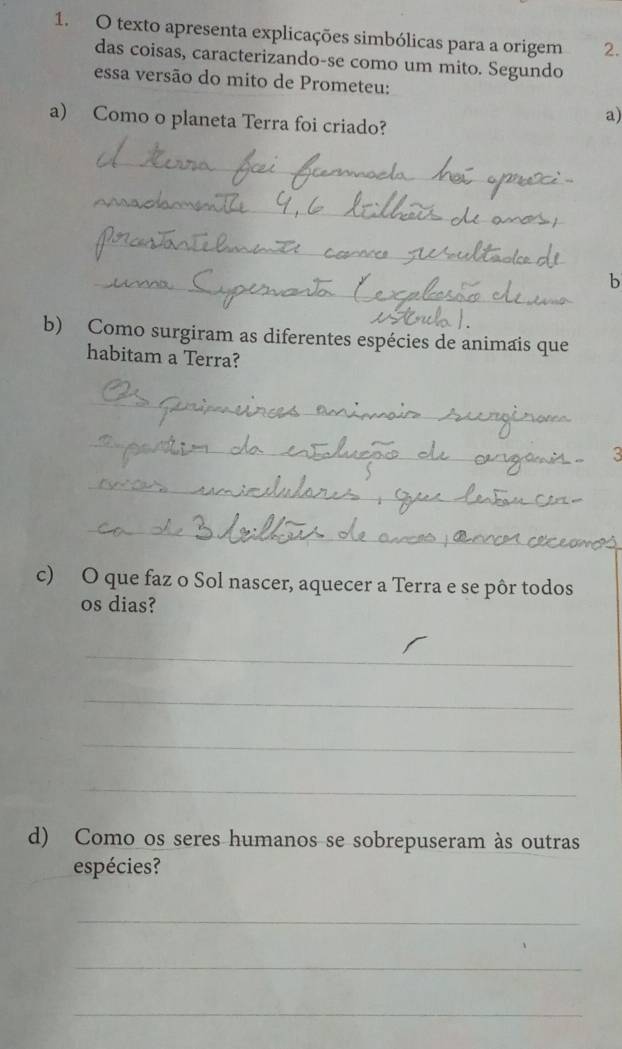 1. O texto apresenta explicações simbólicas para a origem 2.
das coisas, caracterizando-se como um mito. Segundo
essa versão do mito de Prometeu:
a) Como o planeta Terra foi criado? a)
A terra foi formada há aproxi-
madamente 4,6 bilhões de anos,
como resultado de
uma Supernova (explosão de uma b
estrela).
b) Como surgiram as diferentes espécies de animais que
habitam a Terra?
Os primeiros animais surgiram
a partir da evolução de organis- 3
unicelulares, que levou cer-
ca de 3 bilhões de anos, nos oceanos
c) O que faz o Sol nascer, aquecer a Terra e se pôr todos
os dias?
d) Como os seres humanos se sobrepuseram às outras
espécies?